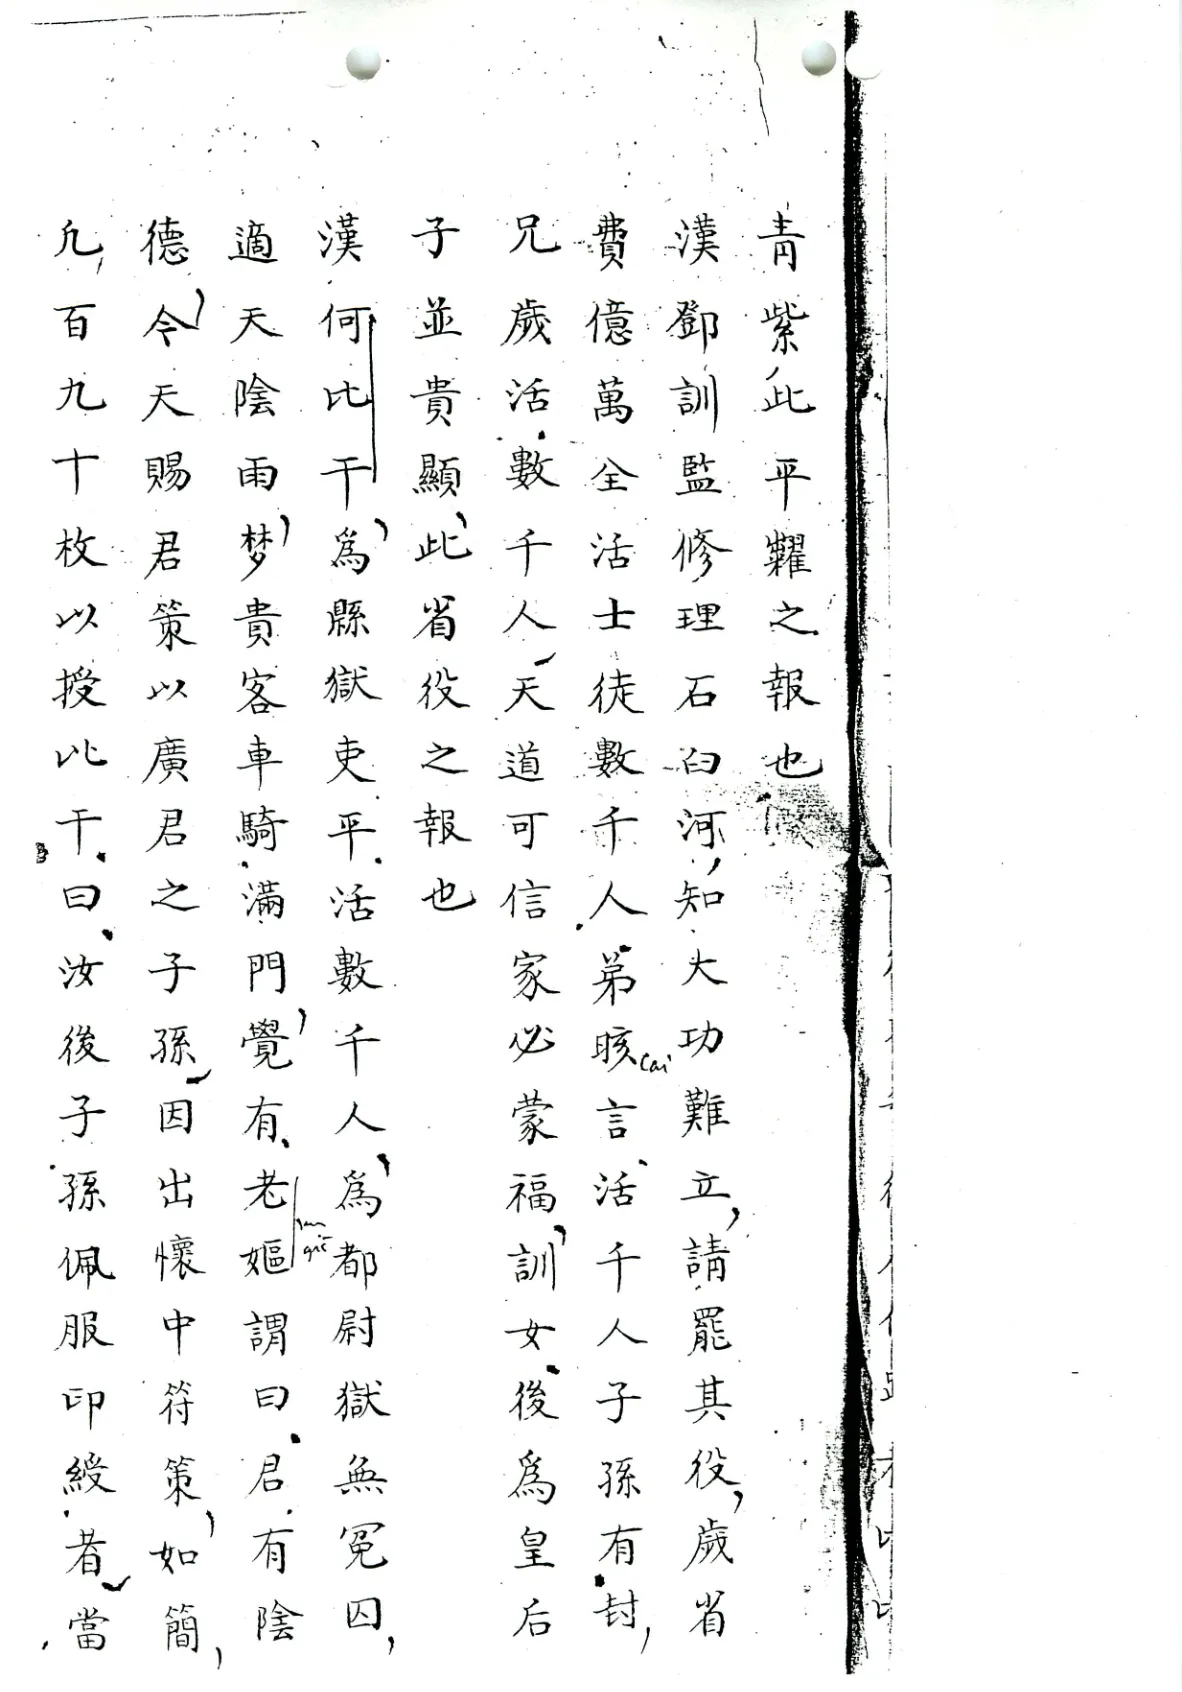 青紫此平糶之報也
漢鄧訓監修理石臼河知大功難立請罷其役歲省
費億萬全活士徒數千人弟晐言活千人子孫有封
cai
兄歲活數千人天道可信家必蒙福訓女後爲皇后
子並貴顯此省役之報也
漢何比干爲縣獄吏平活數千人爲都尉獄無冤囚
適天陰雨梦貴客車騎滿門覺有老嫗謂曰君有陰
德今天賜君策以廣君之子孫因出懷中符策如簡
九百九十枚以授比干曰汝後子孫佩服印綬者當